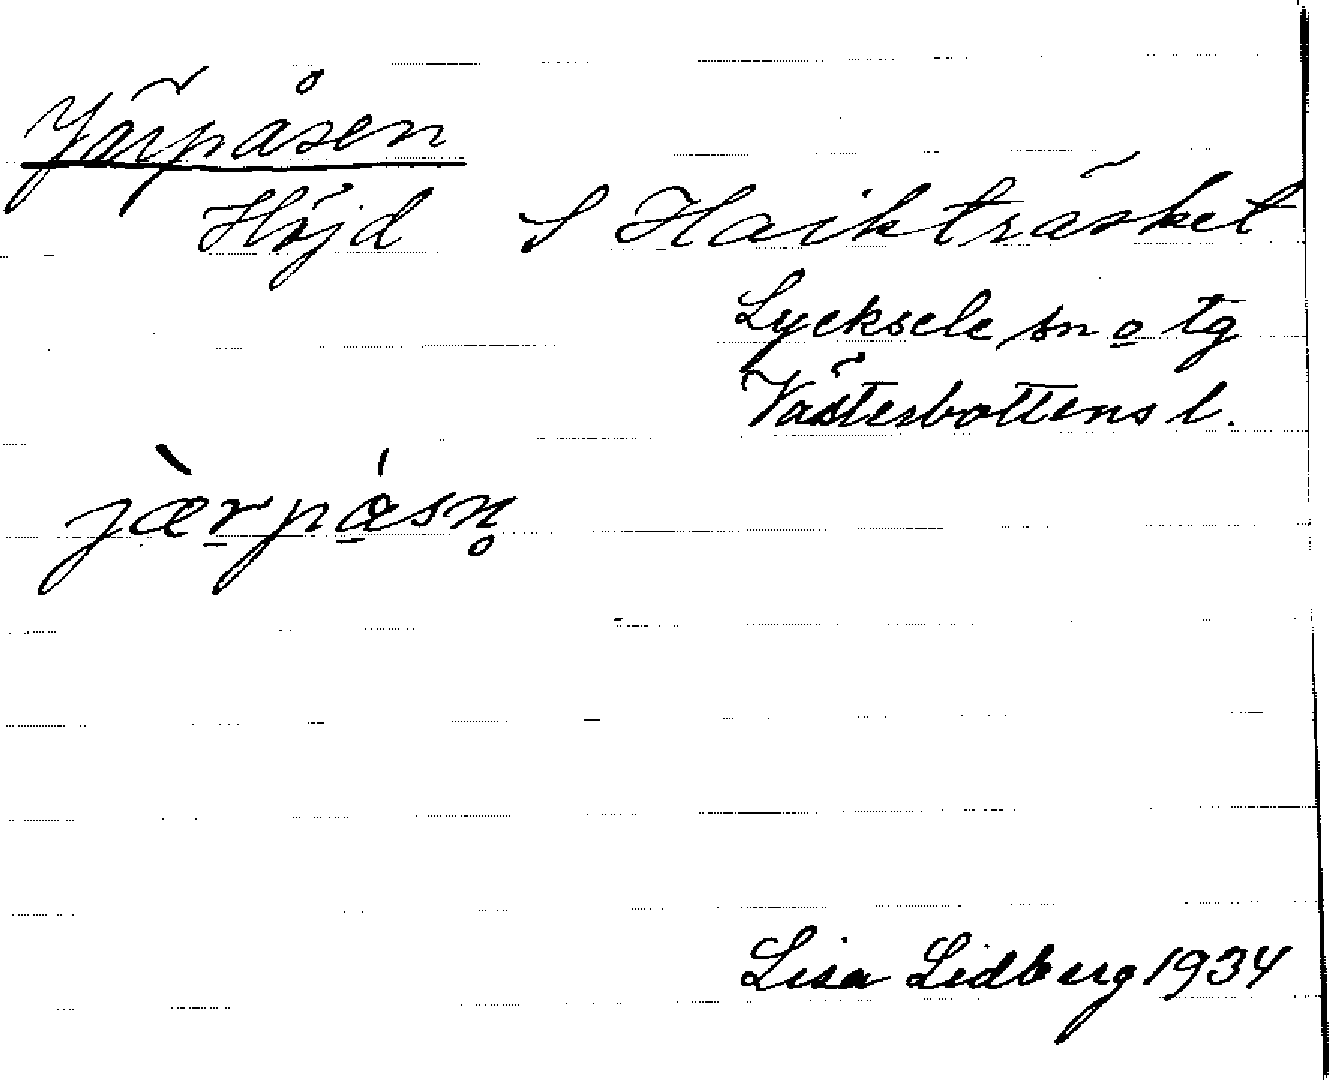 Järpåsen
Höjd S Haikträsket
Lycksele sn o tg
Västerbottens l.
jæ̀rpåsn̥
Lisa Lidberg 1934